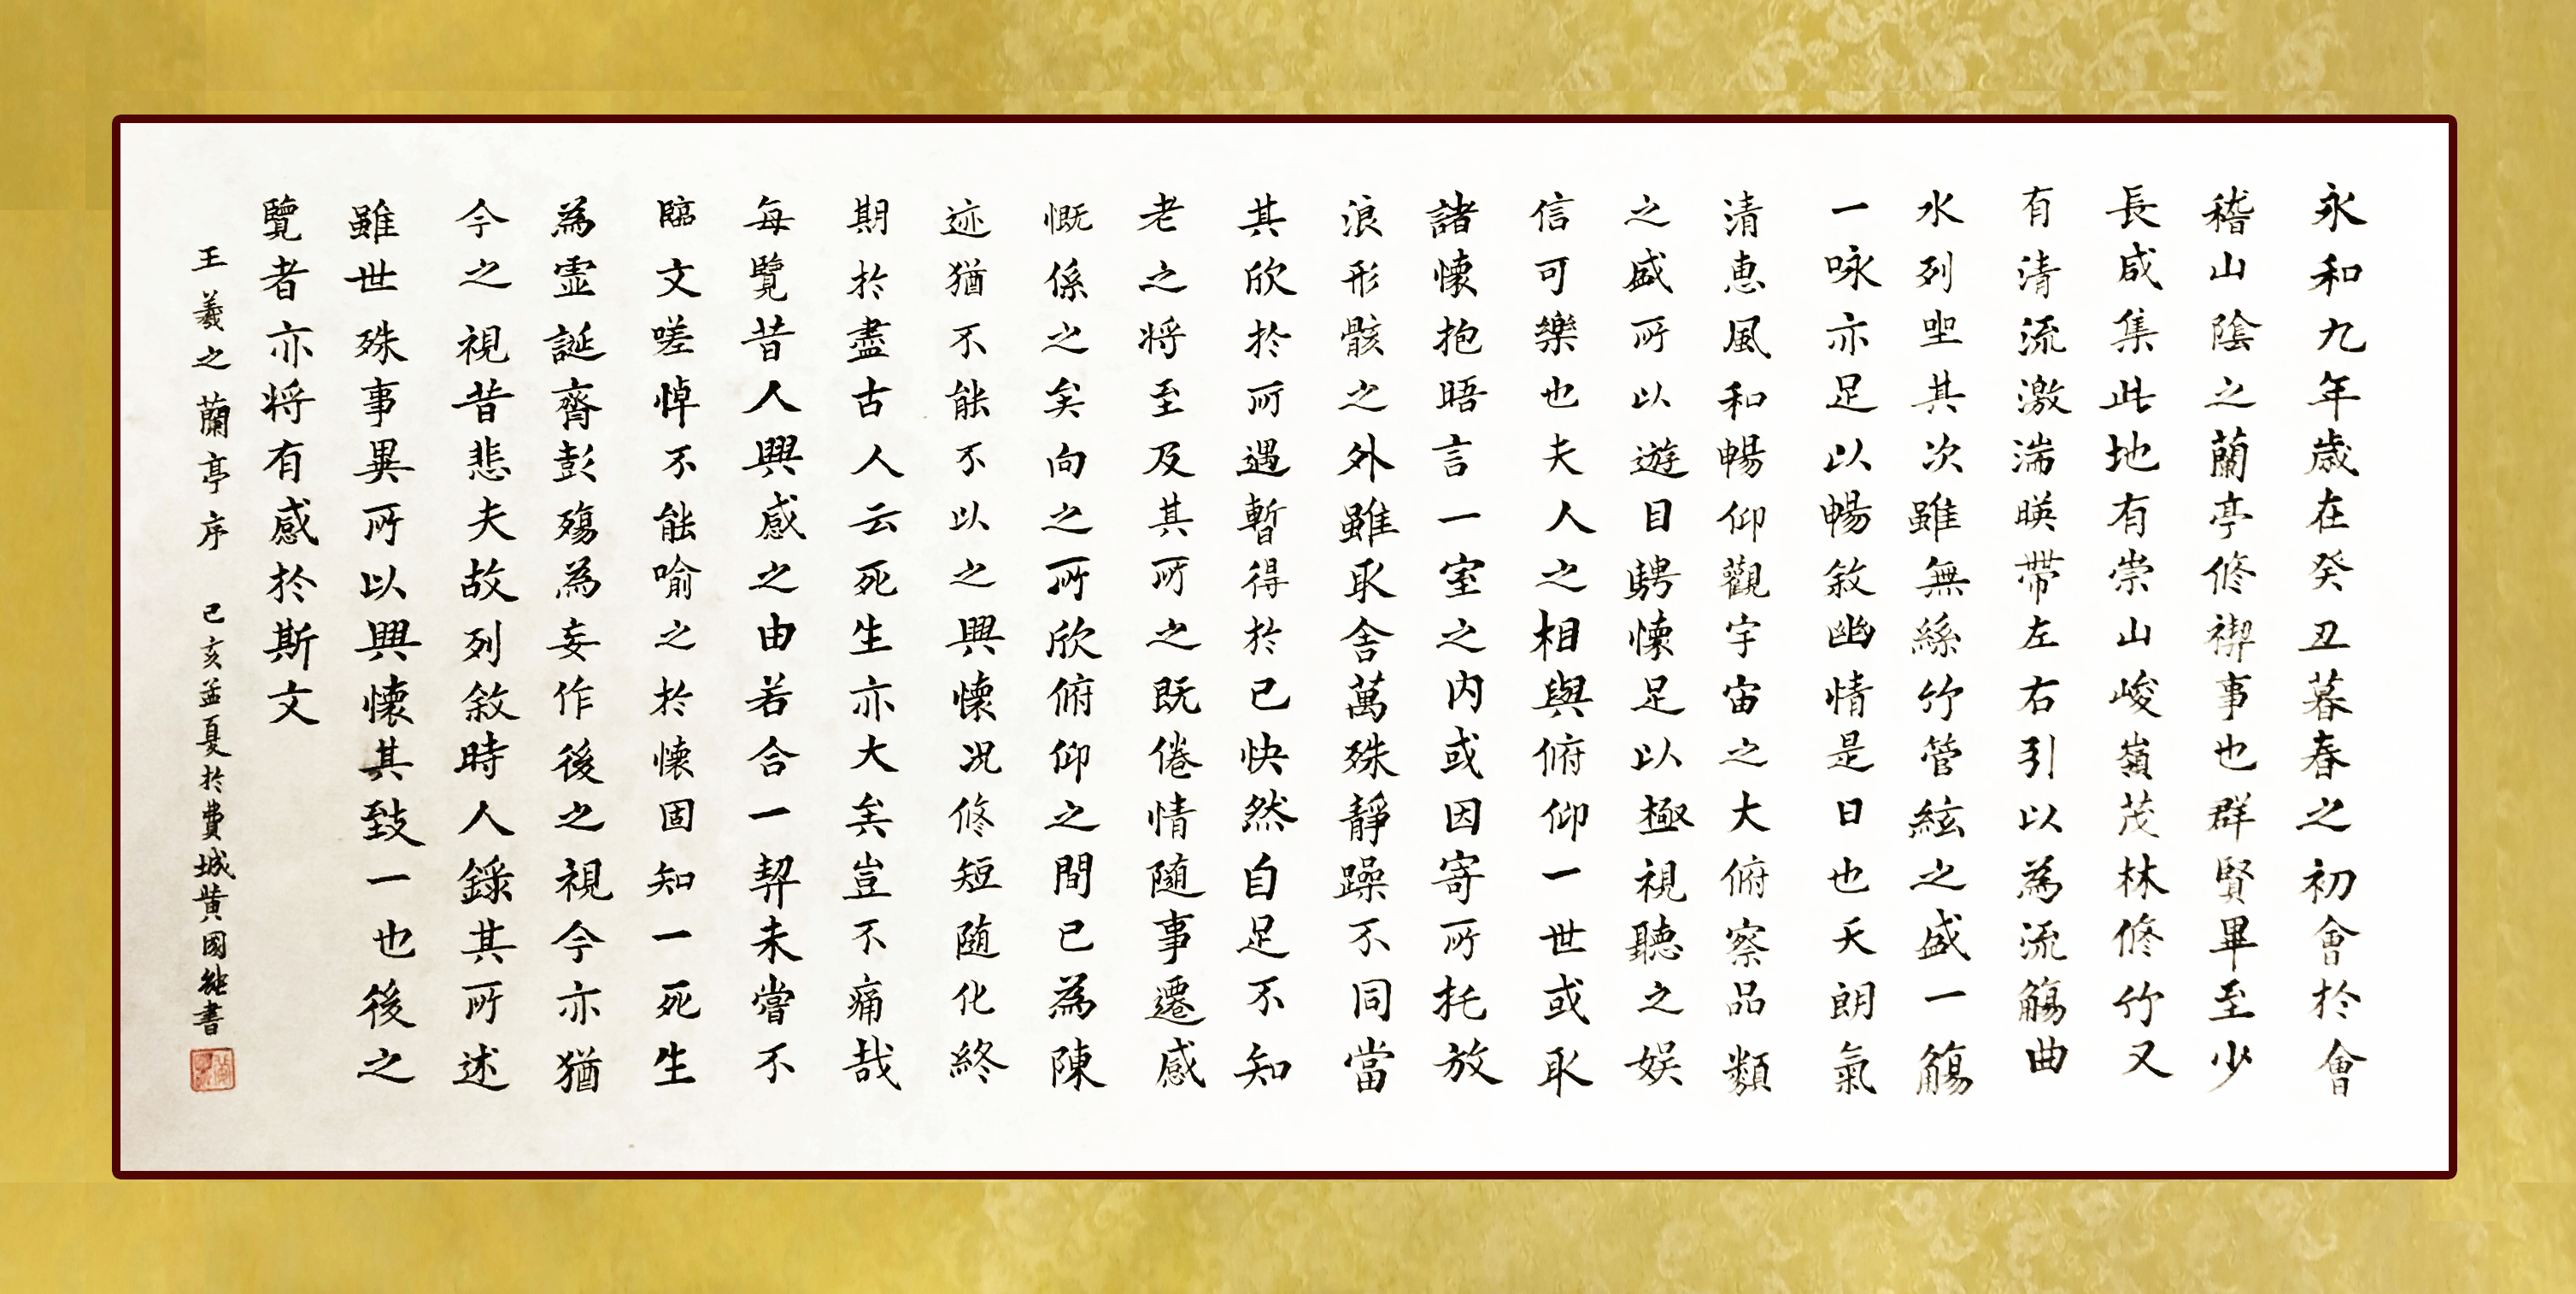 永和九年歲在癸丑暮春之初會於會
稽山陰之蘭亭修禊事也群賢畢至少
長咸集此地有崇山峻嶺茂林修竹又
有清流激湍暎帶左右引以為流觴曲
水列坐其次雖無絲竹管絃之盛一觴
一咏亦足以暢敘幽情是日也天朗氣
清惠風和暢仰觀宇宙之大俯察品類
之盛所以遊目騁懷足以極視聽之娛
信可樂也夫人之相與俯仰一世或取
諸懷抱晤言一室之内或因寄所托放
浪形骸之外雖取舍萬殊靜躁不同當
其欣於所遇暫得於己快然自足不知
老之将至及其所之既倦情隨事遷感
慨係之矣向之所欣俯仰之間已為陳
迹猶不能不以之興懷况修短随化終
期於盡古人云死生亦大矣豈不痛哉
每覽昔人興感之由若合一契未嘗不
臨文嗟悼不能喻之於懷固知一死生
為虛誕齊彭殤為妄作後之視今亦猶
今之視昔悲夫故列敘時人錄其所述
雖世殊事異所以興懷其致一也後之
覽者亦将有感於斯文
王羲之蘭亭序 己亥孟夏於費城黄國能書